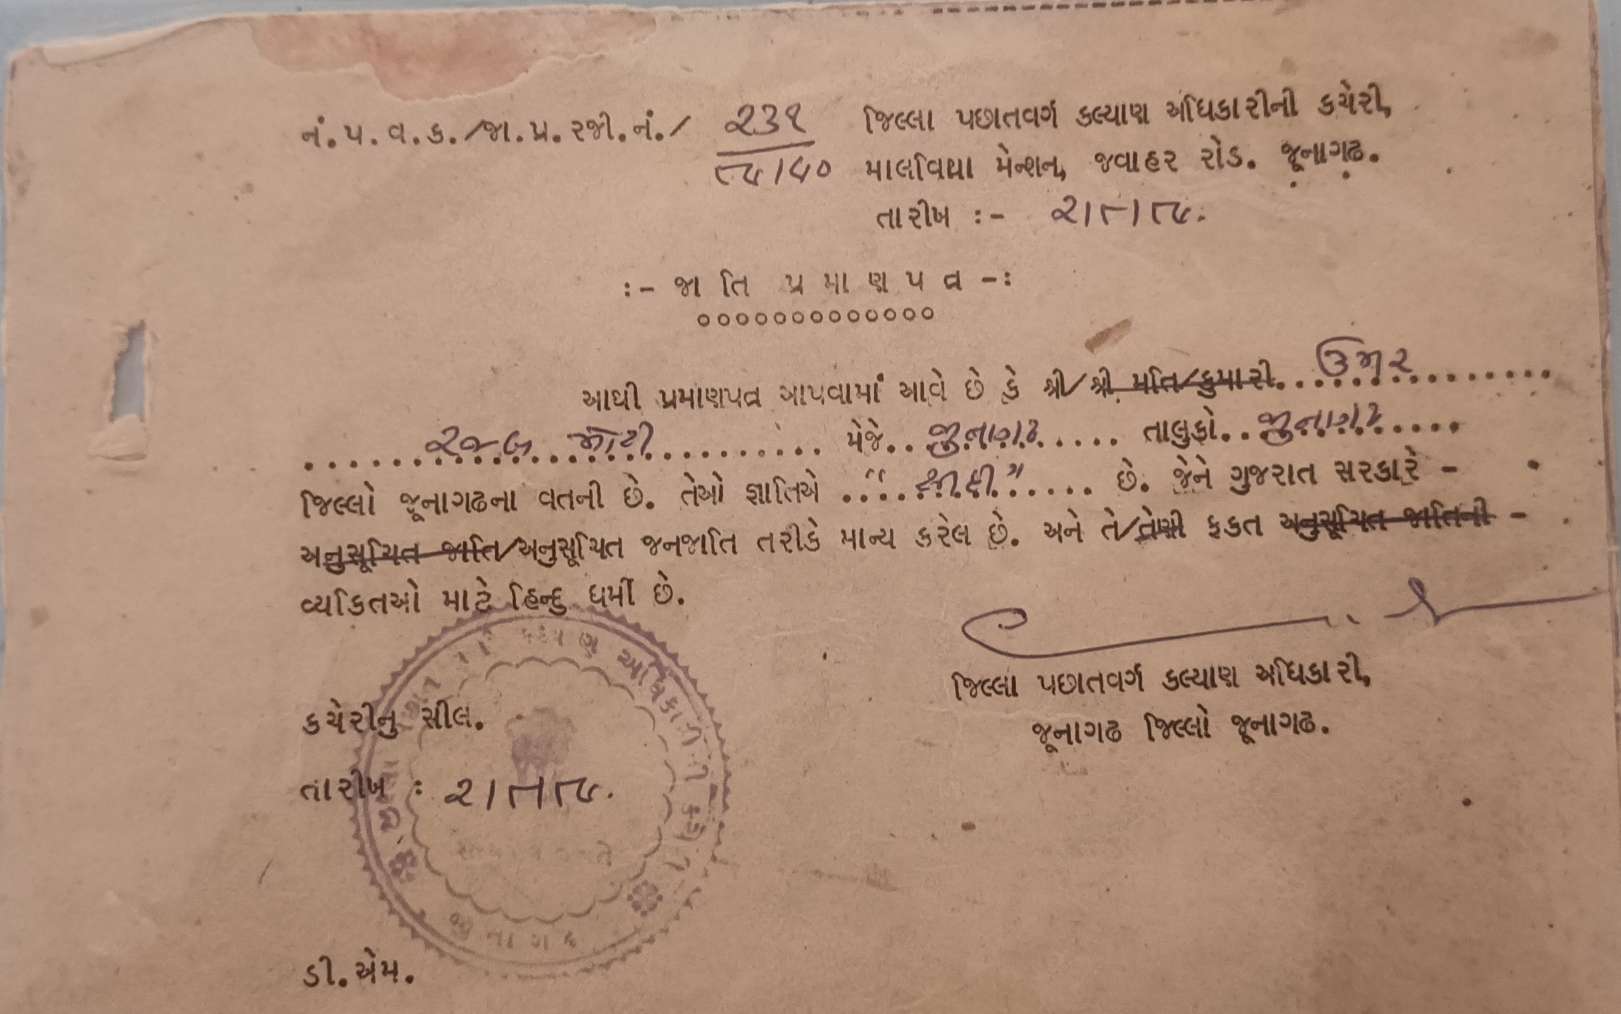 નં.પ.વ.ક./જા.પ્ર.રજી.નં./ ૨૩૧ જિલ્લા પછાતવર્ગ કલ્યાણ અધિકારીની કચેરી,
૮૯/૯૦ માલવિયા મેન્શન, જવાહર રોડ. જૂનાગઢ.
તારીખ :- ૨/૮/૮૯.
:- જા તિ પ્ર મા ણ પ ત્ર -:
આથી પ્રમાણપત્ર આપવામાં આવે છે કે શ્રી/શ્રી મતિ/કુમારી. ઉમર
રજબ મેજે.. જુનાગઢ તાલુકો.. જુનાગઢ
જિલ્લો જૂનાગઢના વતની છે. તેઓ જ્ઞાતિએ "સીદી" છે. જેને ગુજરાત સરકારે -
અનુસૂચિત જાતિ/અનુસૂચિત જનજાતિ તરીકે માન્ય કરેલ છે. અને તે/તેણી ફકત અનુસૂચિત જાતિની -
વ્યકિતઓ માટે હિન્દુ ધર્મી છે.
જિલ્લા પછાતવર્ગ કલ્યાણ અધિકારી,
જૂનાગઢ જિલ્લો જૂનાગઢ.
કચેરીનુ સીલ.
તારીખ : ૨/૮/૮૯.
કલ્યાણ અધિકારીની કચેરી
જુનાગઢ
ડી.એમ.